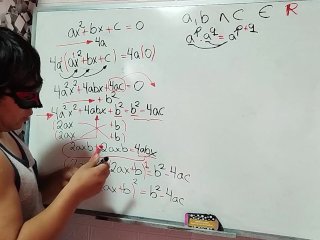 ax² + bx + c = 0
4a
4a(ax² + bx + c) = 4a(0)
4a²x² + 4abx + 4ac = 0
+ b²
4a²x² + 4abx + b² = b² - 4ac
(2ax +b)
(2ax +b)
2axb + 2axb = 4abx
2ax + b)² = b² - 4ac
ax + b)² = b² - 4ac
a, b ∧ c ∈ R
aᵖ · a^q = a^(p+q)